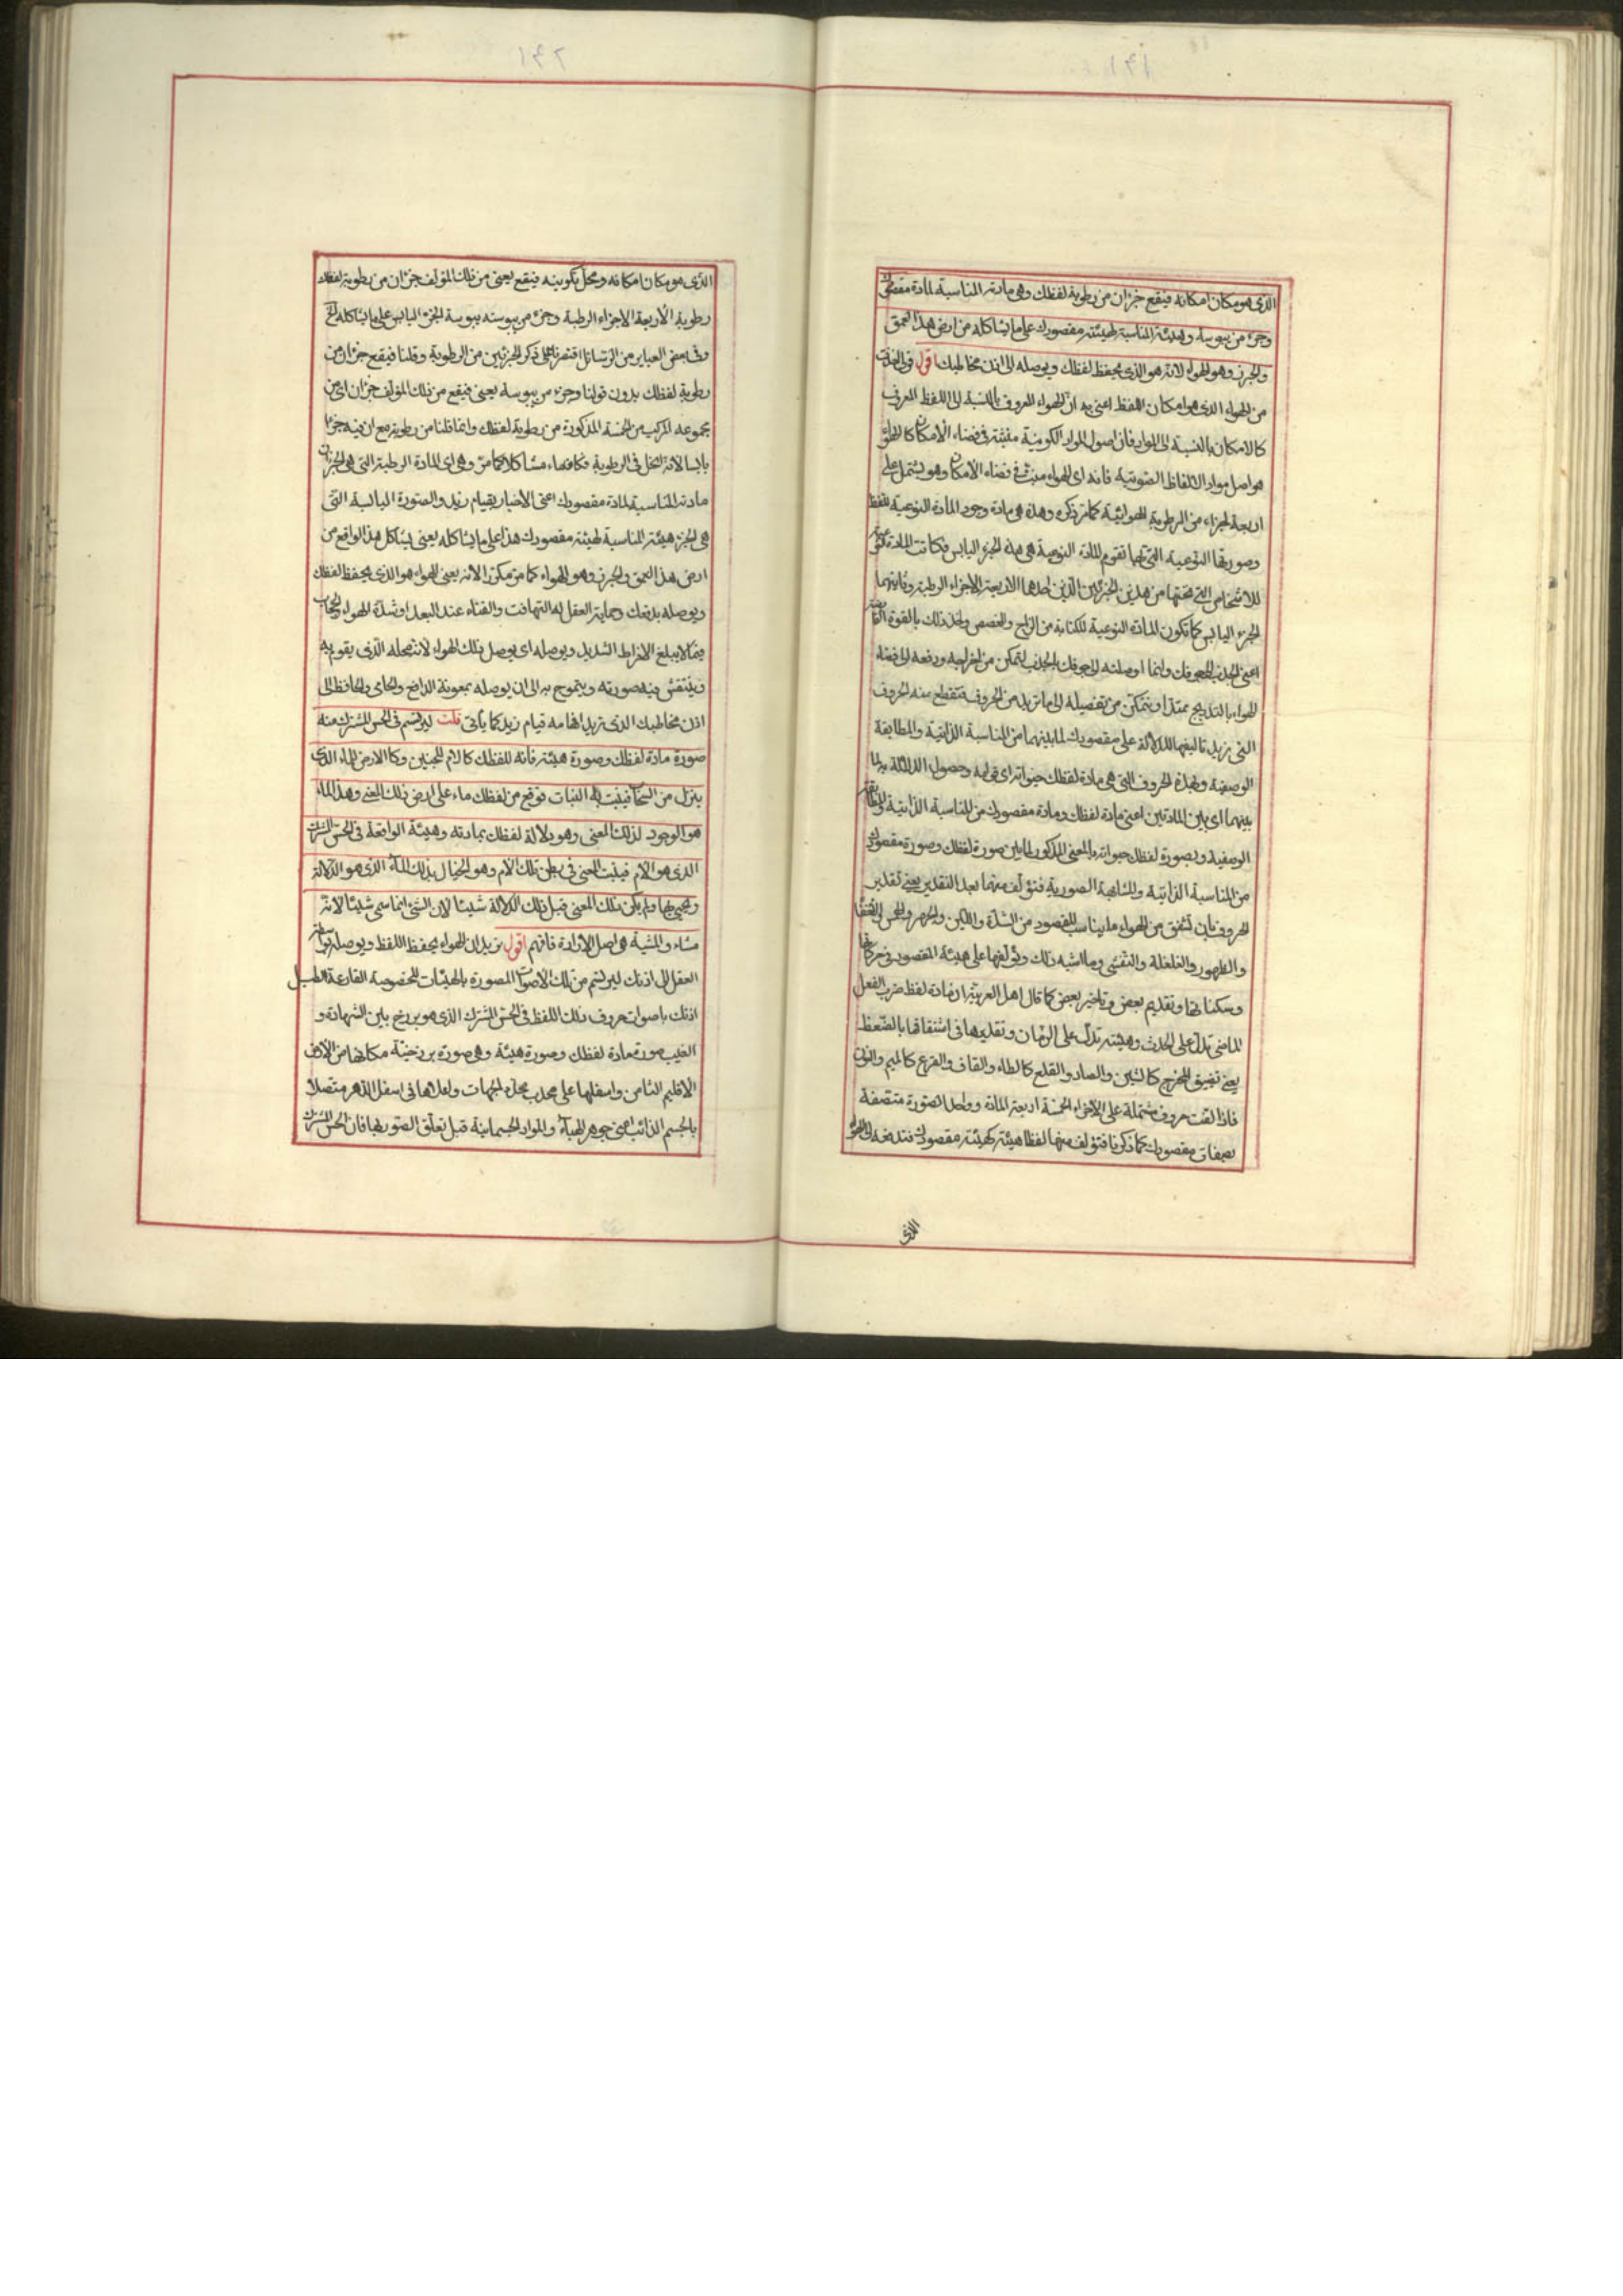 الذى هو مكان امكانه فيقع جزءان من رطوبة لفظك وهى مادته المناسبة لمادة مقصودك
وجزء من يبوسة وهيئته المناسبة لهيئته مقصودك على ما يشاكله من ارض هذا العمق
والجرز وهو الهواء لانه هو الذى يحفظ لفظك ويوصله الى اذن مخاطبك اقول قولى
من الهواء الذى هو امكان اللفظ اعنى به ان الهواء المعروف بالنسبة الى اللفظ المعروف
كالامكان بالنسبة الى المواد فان اصول المواد الكونية منبثة فى فضاء الامكان كالهواء
هو اصل مواد الالفاظ الصوتية فانه اى الهواء منبث فى فضاء الامكان وهو يشتمل على
اربعة اجزاء من الرطوبة الهوائية كما تر ذكره وهذه هى مادة وجود المادة النوعية للفظ
وصورتها النوعية التى بها تقوم المادة النوعية هى هذه الجزء اليابس فكانت المادة
للاشخاص التى تحتها من هذين الجزئين الذين احدهما الاربعة الاجزاء الرطبة وثانيهما
الجزء اليابس كما تكون المادة النوعية للكتابة من الزاج والعفص واخذ ذلك بالقوة
اعنى الجذب الى جوفك وانما اوصلته الى جوفك بالجذب لتتمكن من اخراجه ودفعه الى فضاء
الهواء بالتدريج ممتدا وتتمكن من تفصيله الى ما تريد من الحروف فتقطع منه الحروف
التى تريد تاليفها للدلالة على مقصودك لما بينهما من المناسبة الذاتية والمطابقة
الوصفية وبهذه الحروف التى هى مادة لفظك حيواته اى وحصول الدلالة به لما
بينهما اى بين المادتين اعنى مادة لفظك ومادة مقصودك من المناسبة الذاتية والمطابقة
الوصفية وبصورة لفظك حيواته بالمعنى المذكور لما بين صورة لفظك وصورة مقصودك
من المناسبة الذاتية والمشابهة الصورية فتؤلف منهما بعد التقدير يعنى تقدير
الحروف بان تشتق من الهواء ما يناسب المقصود من الشدة واللين والجهر والهمس
والظهور والقلقلة والتفشى وما اشبه ذلك وتؤلفها على هيئة المقصود فى حركاتها
وسكناتها وتقديم بعض وتاخير بعض كما قال اهل العربية ان مادة لفظ ضرب الفعل
الماضى تدل على الحدث وهيئته تدل على الزمان وتقديمها فى اشتقاقها بالضغط
يعنى تضيق المخرج كالشين والصاد والقلع كالطاء والقاف والقرع كالميم والنون
فاذا الفت حروف مشتملة على الاجزاء الخمسة اربعة المادة وواحد الصورة متصفة
بصفات مقصودك كما ذكرنا فتؤلف منها لفظا هيئته كهيئته مقصودك فتدفعه الى الهواء
الذى
الذى هو مكان امكانه ومحل تكوينه فيقع يعنى من ذلك المؤلف جزءان من رطوبة لفظك
رطوبة الاربعة الاجزاء الرطبة وجزء من يبوسته يبوسة الجزء اليابس على ما يشاكله الخ
وفى بعض العباير من الرسائل اقتصرنا على ذكر الجزئين من الرطوبة وقلنا فيقع جزءان من
رطوبة لفظك بدون قولنا وجزء من يبوسة يعنى فيقع من ذلك المؤلف جزءان اى من
مجموعه المركب من الخمسة المذكورة من رطوبة لفظك وانما قلنا من رطوبة مع ان فيه جزءا
يابسا لانه انحل فى الرطوبة فكانهما مشاكلا كما مر وهى اى المادة الرطبة التى هى الجزءان
مادته المناسبة لمادة مقصودك اعنى الاخبار بقيام زيد والصورة اليابسة التى
هى الجزء هيئته المناسبة لهيئته مقصودك هذا على ما يشاكله يعنى يشاكل هذا الواقع من
ارض هذا العمق والجرز وهو الهواء كما مر مكرر الانه يعنى الهواء هو الذى يحفظ لفظك
ويوصله بدفعك وحماية العقل له التهافت والفناء عند البعد او شدة الهواء والحجاب
مما لا يبلغ الافراط الشديد ويوصله اى يوصل ذلك الهواء لانه محله الذى يقوم به
وينتقش فيه صورته ويتموج به الى ان يوصله بمعونة الدافع والحامى والحافظ الى
اذن مخاطبك الذى تريد افهامه قيام زيد كما ياتى قلت ليرتسم فى الحس المشترك منه
صورة مادة لفظك وصورة هيئته فانه للفظك كالام للجنين وكالارض للماء الذى
ينزل من السحاب فينبت به النبات فوقع من لفظك ماء على ارض ذلك المعنى وهذا الماء
هو الوجود لذلك المعنى وهو دلالة لفظك بمادته وهيئة الواقعة فى الحس المشترك
الذى هو الام فينبت المعنى فى بطن تلك الام وهو الخيال بذلك الماء الذى هو الدلالة
ويحيى بها ولم يكن ذلك المعنى قبل ذلك الدلالة شيئا لان الشئ انما سمى شيئا لانه
مشاء والمشية هى اصل الارادة فافهم اقول نريد ان الهواء يحفظ اللفظ ويوصله
العقل الى اذنك ليرتسم من تلك الاصوات المصورة بالهيئات المخصوصة القارعة الطبل
اذنك باصوات حروف ذلك اللفظ فى الحس المشترك الذى هو برزخ بين الشهادة و
الغيب صورة مادة لفظك وصورة هيئة وهى صورة برزخية مكانها من الارض
الاقليم الثامن واسفلها على محدب محدد الجهات واعلاها فى اسفل الدهر متصلا
بالجسم الذائب اعنى جوهر الهباء والمواد الجسمانية قبل تعلق الصور بها فان الحس المشترك